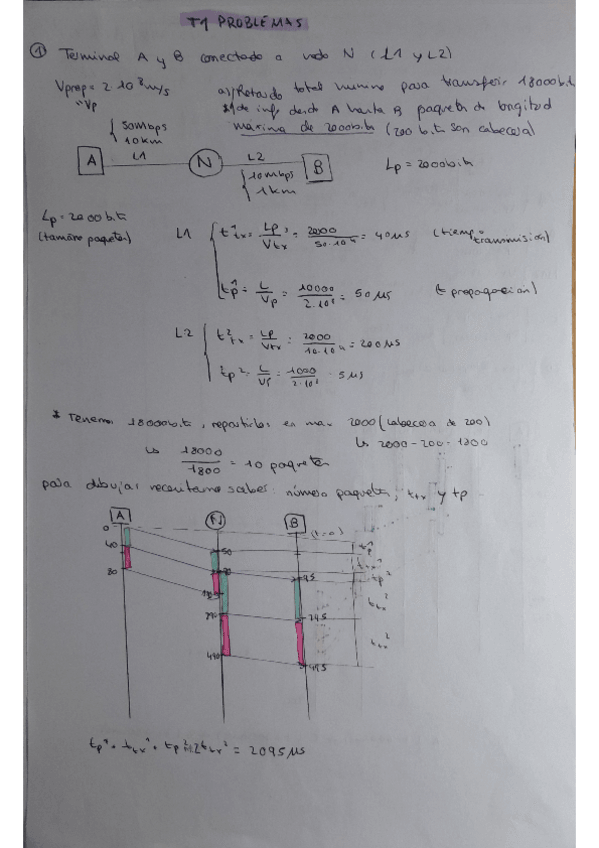 T1 PROBLEMAS
① Terminal A y B conectado a nodo N (L1 y L2)
Vprop = 2·10⁸ m/s a) Retardo total mínimo para transferir 18000 bit
"Vp de inf desde A hasta B paquetes de longitud
50Mbps máxima de 2000bits (200 bits son cabecera)
10km
A L1 N L2 B Lp = 2000bits
10Mbps
1km
Lp = 2000 bits
(tamaño paquetes) L1 t¹tx = Lp/Vtx = 2000/50·10⁶ = 40µs (tiempo transmision)
t¹p = L/Vp = 10000/2·10⁸ = 50 µs (t propagacion)
L2 t²tx = Lp/Vtx = 2000/10·10⁶ = 200µs
tp² = L/Vp = 1000/2·10⁸ = 5µs
* Tenemos 18000bits, repartirlos en max 2000 (cabecera de 200)
↳ 18000/1800 = 10 paquetes ↳ 2000-200=1800
para dibujar necesitamos saber: número paquetes, ttx y tp
A N B
0 (t=0)
40 50 tp¹
80 90 95 tp²
ttx²
290 295
ttx²
490 495
tp¹ + ttx¹ + tp² + ttx² = 2095µs